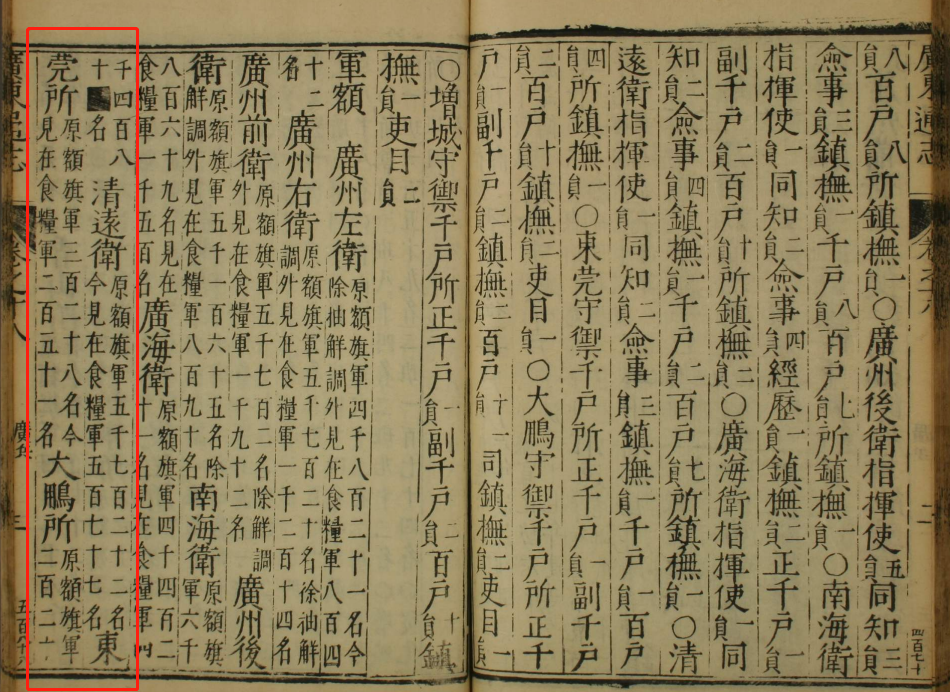 廣東通志 卷之 二 四百七十
八員百戶八員所鎮撫一員〇廣州後衛指揮使五員同知三員
僉事三員鎮撫一員千戶八員百戶七員所鎮撫一員〇南海衛
指揮使一員同知二員僉事四員經歷一員鎮撫二員正千戶一員
副千戶二員百戶十員所鎮撫二員〇廣海衛指揮使一員同
知二員僉事四員鎮撫一員千戶二員百戶七員所鎮撫一員〇清
遠衛指揮使一員同知二員僉事三員鎮撫一員千戶一員百戶
四員所鎮撫一員〇東莞守禦千戶所正千戶一員副千戶
二員百戶十員鎮撫二員吏目一員〇大鵬守禦千戶所正千
戶一員副千戶二員鎮撫二員百戶十員一司鎮撫二員吏目一員
〇增城守禦千戶所正千戶一員副千戶二員百戶十員鎮
撫一員吏目二員
軍額 廣州左衛原額旗軍四千八百二十一名今除抽鮮調外見在食糧軍八百四
十二名 廣州右衛原額旗軍五千七百二十名徐抽鮮調外見在食糧軍一千二百十四名
廣州前衛原額旗軍五千七百二名除鮮調外見在食糧軍一千九十二名廣州後
衛原額旗軍五千一百六十五名除鮮調外見在食糧軍八百九十名南海衛原額旗軍六千
八百六十九名見在食糧軍一千五百名廣海衛原額旗軍四千四百二十一名見在食糧軍四
千四百八十名 清遠衛原額旗軍五千七百二十二名今見在食糧軍五百七十七名東
莞所原額旗軍三百二十八名今見在食糧軍二百五十一名大鵬所原額旗軍二百二
廣東通志 卷之十八 廣兵 三